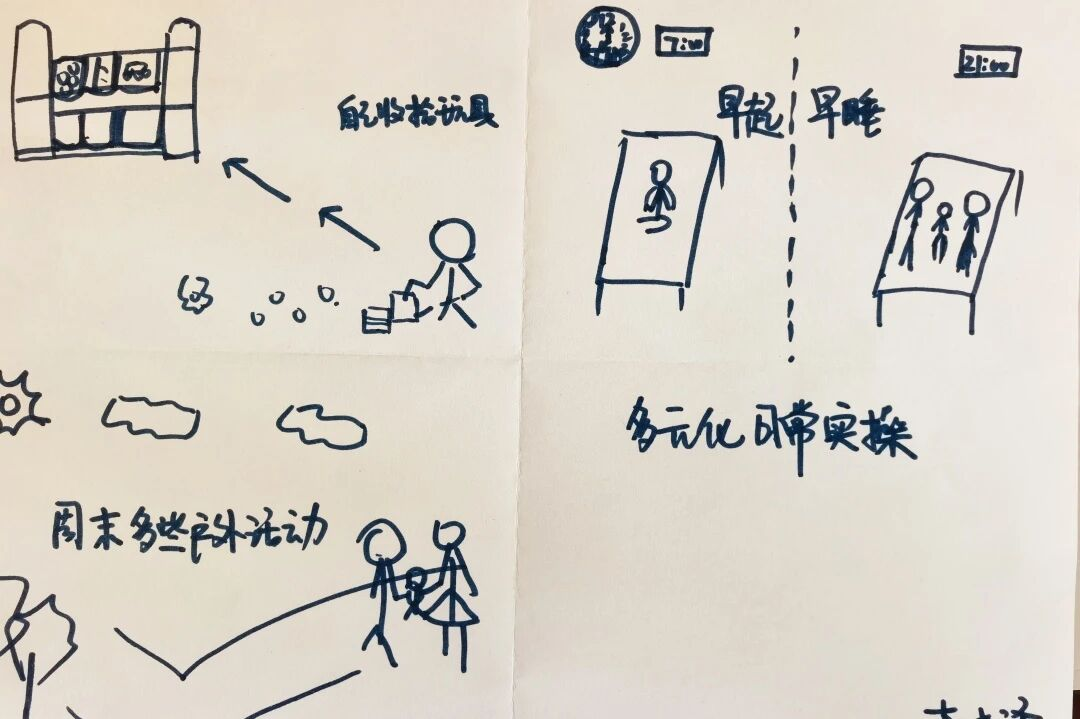 自己收拾玩具
7:00
21:00
早起
早睡
多元化日常实操
周末多些户外活动